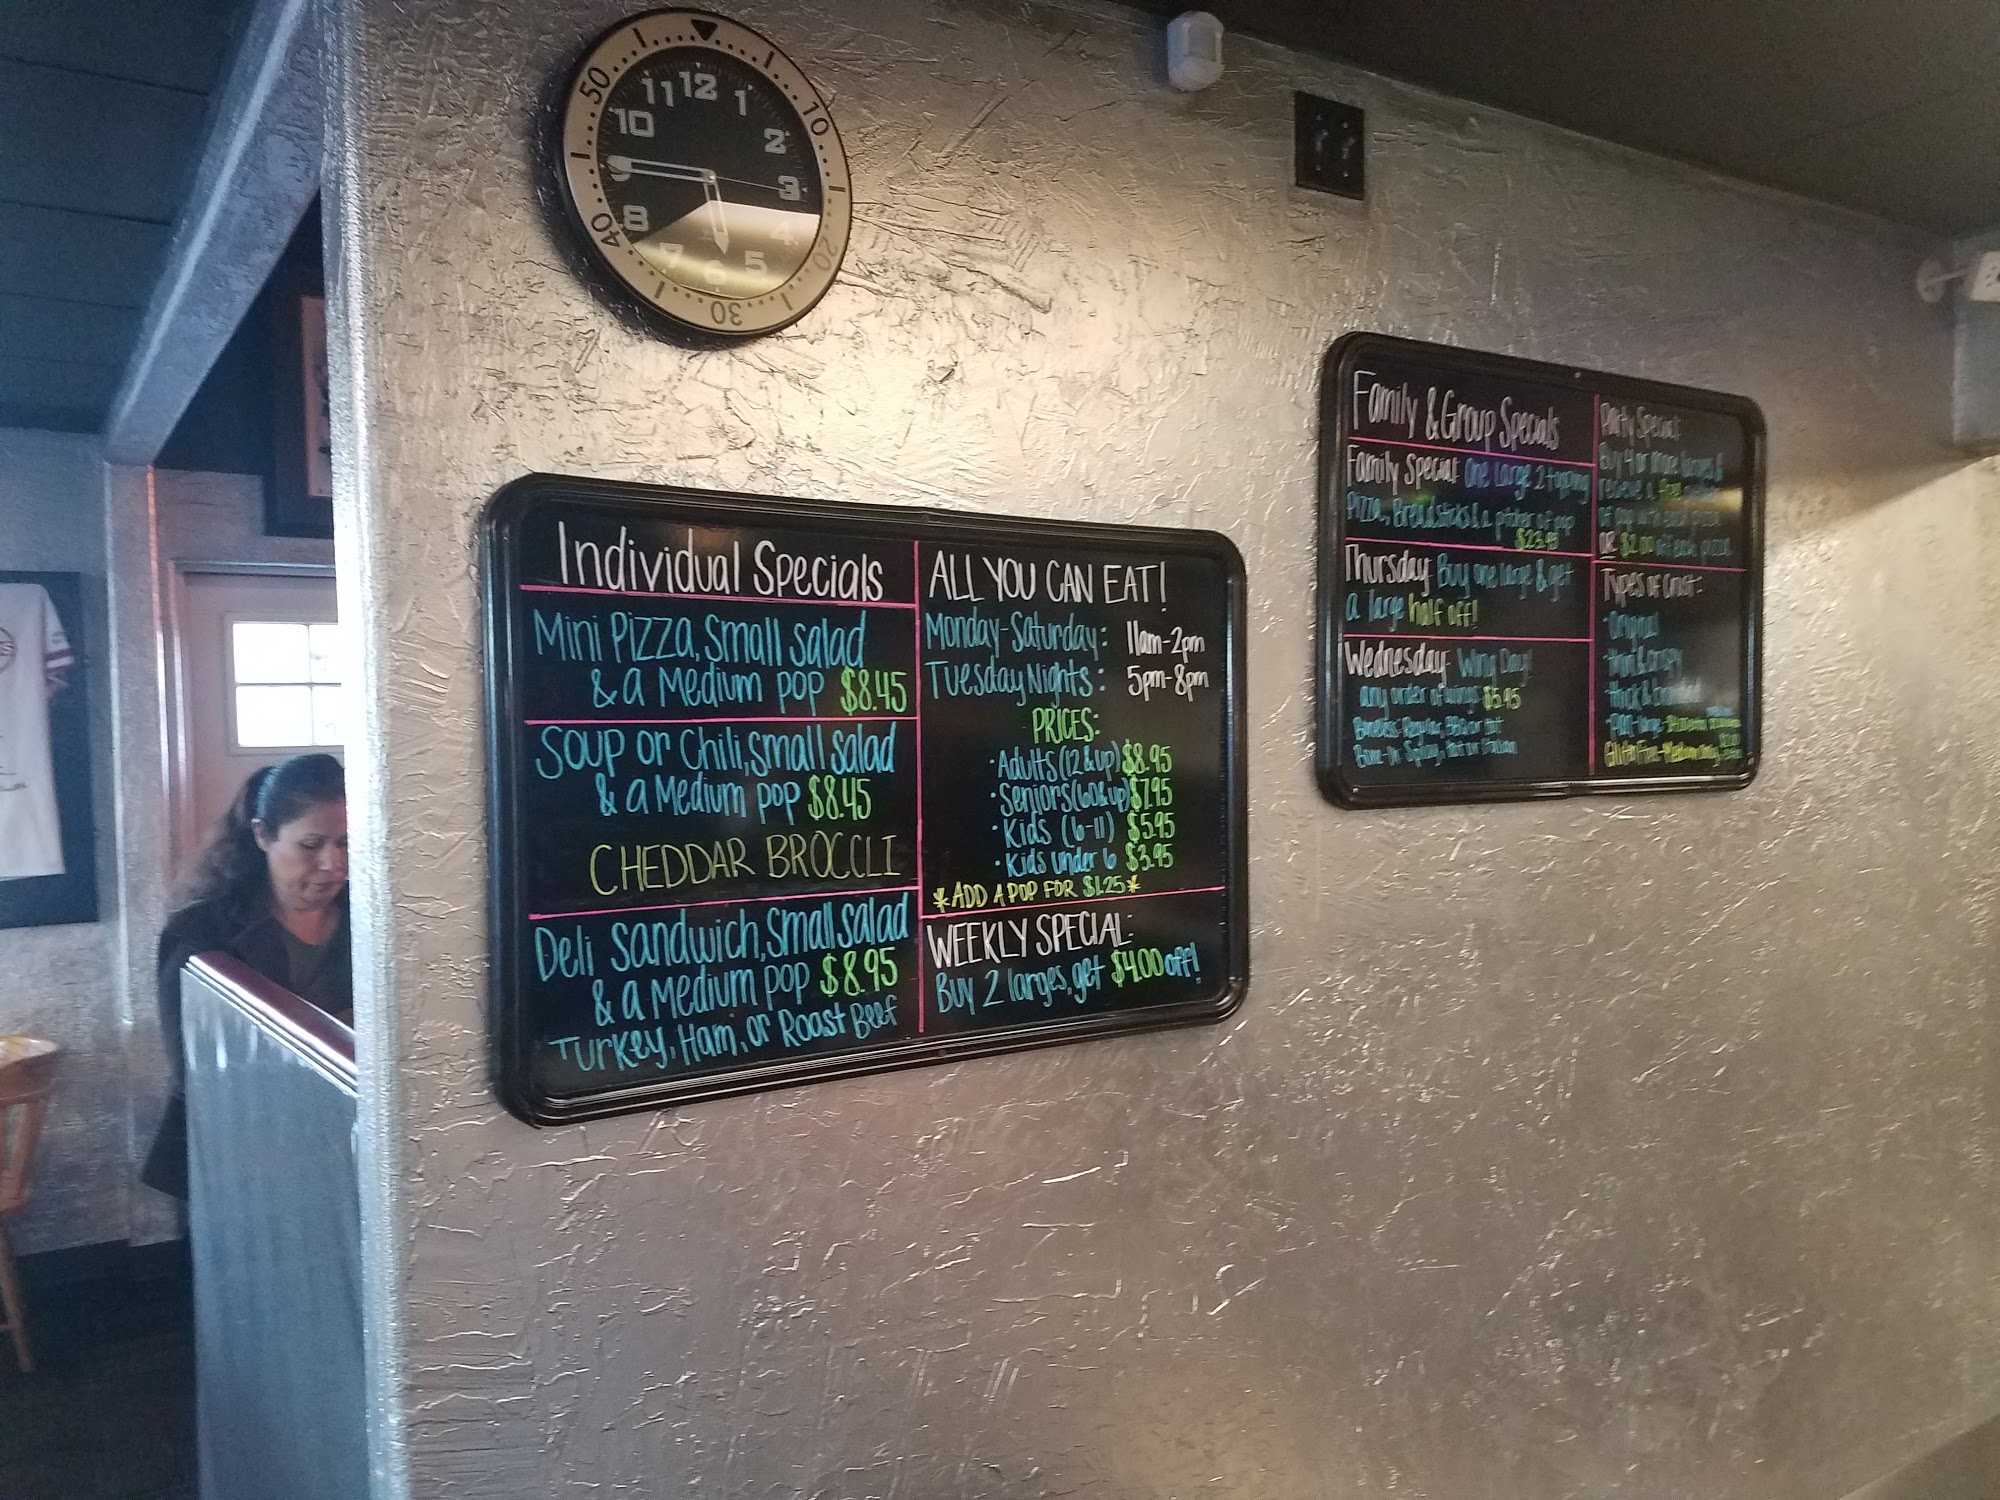 50
10
20
30
40
12
1
2
3
4
5
6
7
8
9
10
11
Individual Specials
Mini Pizza, Small Salad
& a Medium pop $8.45
Soup or Chili, Small Salad
& a Medium pop $8.45
CHEDDAR BROCCLI
Deli Sandwich, Small Salad
& a Medium pop $8.95
Turkey, Ham, or Roast Beef
ALL YOU CAN EAT!
Monday-Saturday: 11am-2pm
Tuesday Nights: 5pm-8pm
PRICES:
• Adults (12 & up) $8.95
• Seniors (60 & up) $7.95
• Kids (6-11) $5.95
• Kids under 6 $3.95
*ADD A POP FOR $1.25*
WEEKLY SPECIAL:
Buy 2 larges, get $4.00 off!
Family & Group Specials
Family Special: One Large 2 topping
Pizza, Breadsticks & a pitcher of pop
$23.95
Thursday: Buy one large & get
a large half off!
Wednesday: Wing Day!
any order of wings $5.95
Boneless: Regular, BBQ or Hot
Bone-In: Spicy, Hot or Italian
Party Special:
Buy 4 or more larges &
receive a free pitcher
of pop with each pizza
OR $2.00 off each pizza
Types of Crust:
• Original
• Thin & crispy
• Thick &
Gluten Free - Medium only